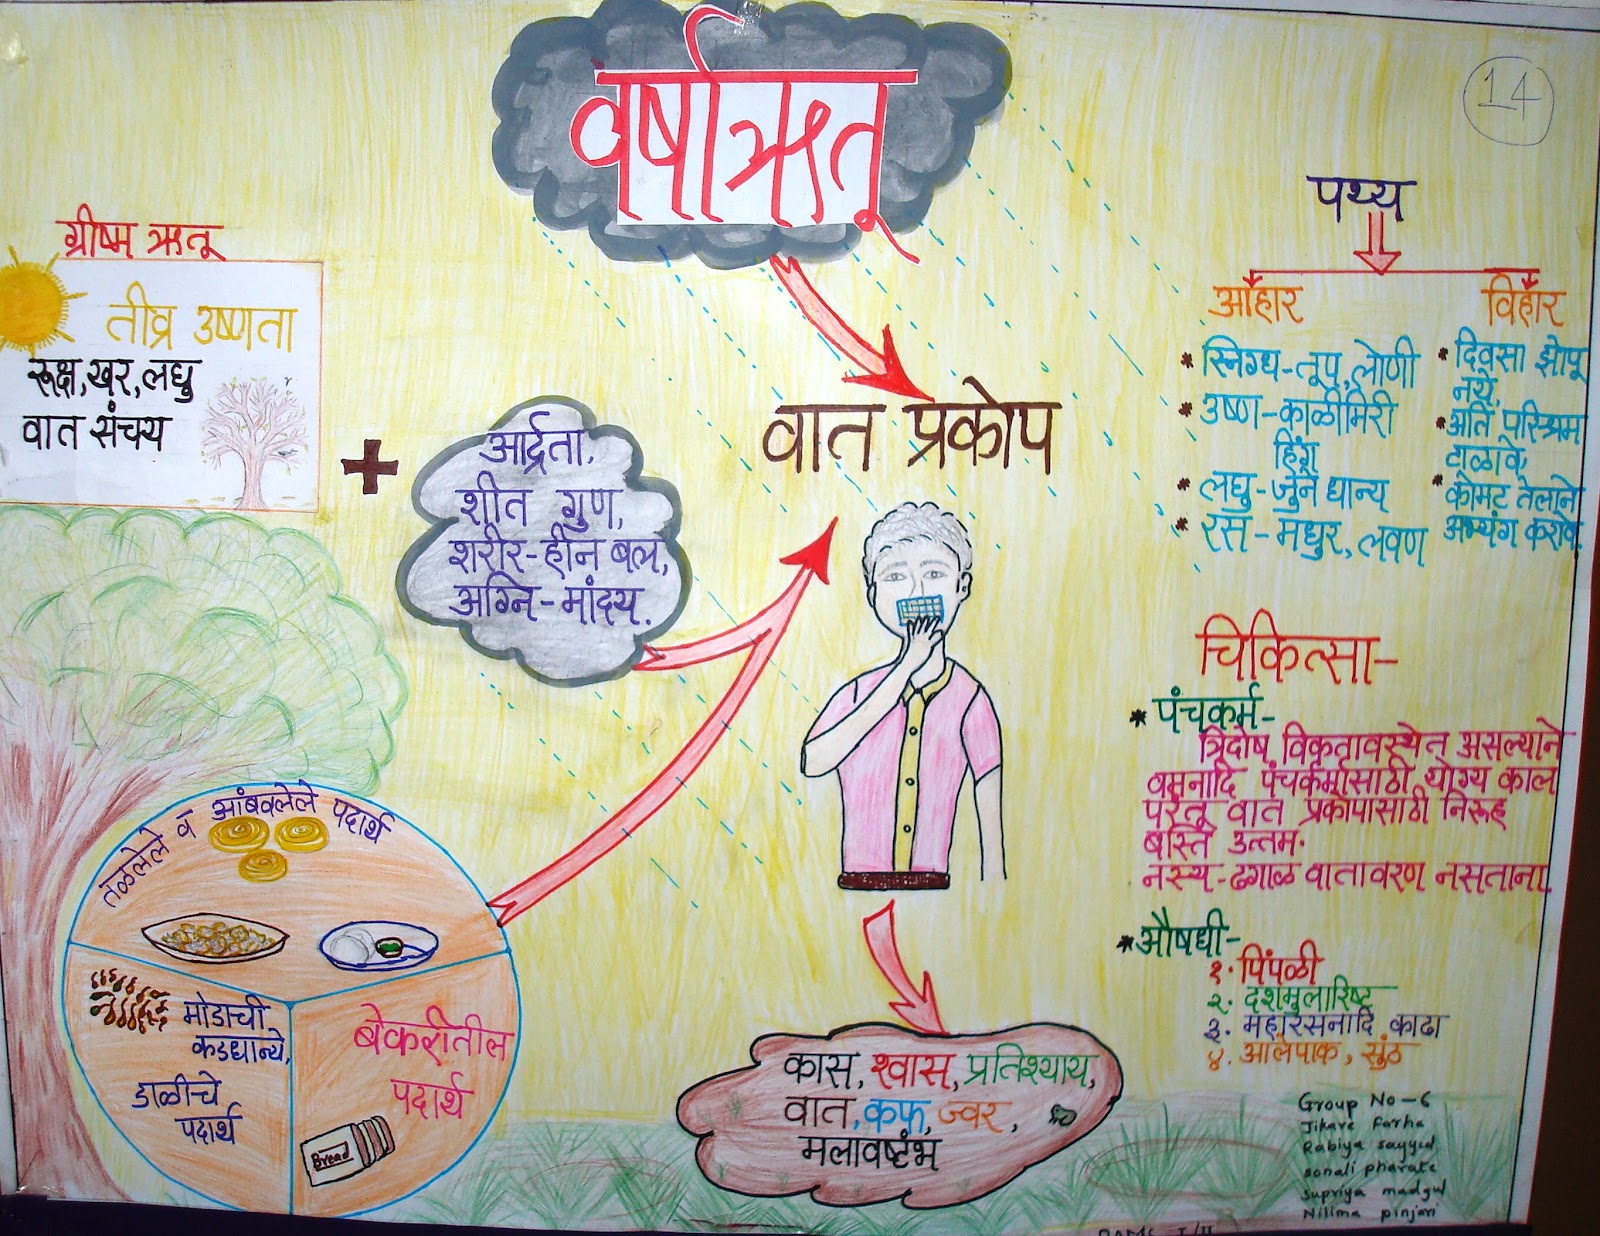 वर्षाऋतू
14
ग्रीष्म ऋतू
तीव्र उष्णता
रूक्ष,खर,लघु
वात संचय
+
आर्द्रता,
शीत गुण,
शरीर-हीन बल,
अग्नि-मांद्य.
वात प्रकोप
पथ्य
आहार
* स्निग्ध-तूप,लोणी
* उष्ण-काळीमिरी
हिंग
* लघु-जुने धान्य
* रस-मधुर,लवण
विहार
* दिवसा झोपू
नये.
* अति परिश्रम
टाळावे,
* कोमट तेलाने
अभ्यंग करावे.
चिकित्सा-
* पंचकर्म-
त्रिदोष विकृतावस्थेत असल्याने
वमनादि पंचकर्मासाठी योग्य काल
परंतू वात प्रकोपासाठी निरूह
बस्ति उत्तम.
नस्य-ढगाळ वातावरण नसताना
* औषधी-
१. पिंपळी
२. दशमुलारिष्ट
३. महारसनादि काढा
४. आलेपाक, सुंठ
तळलेले व आंबवलेले पदार्थ
मोडाची
कडधान्ये,
डाळीचे
पदार्थ
बेकरीतील
पदार्थ
Bread
कास, श्वास, प्रतिश्याय,
वात, कफ, ज्वर,
मलावष्टंभ
Group No-6
Jikare Farha
Rabiya sayyed
sonali pharate
supriya madgul
Nilima pinjari